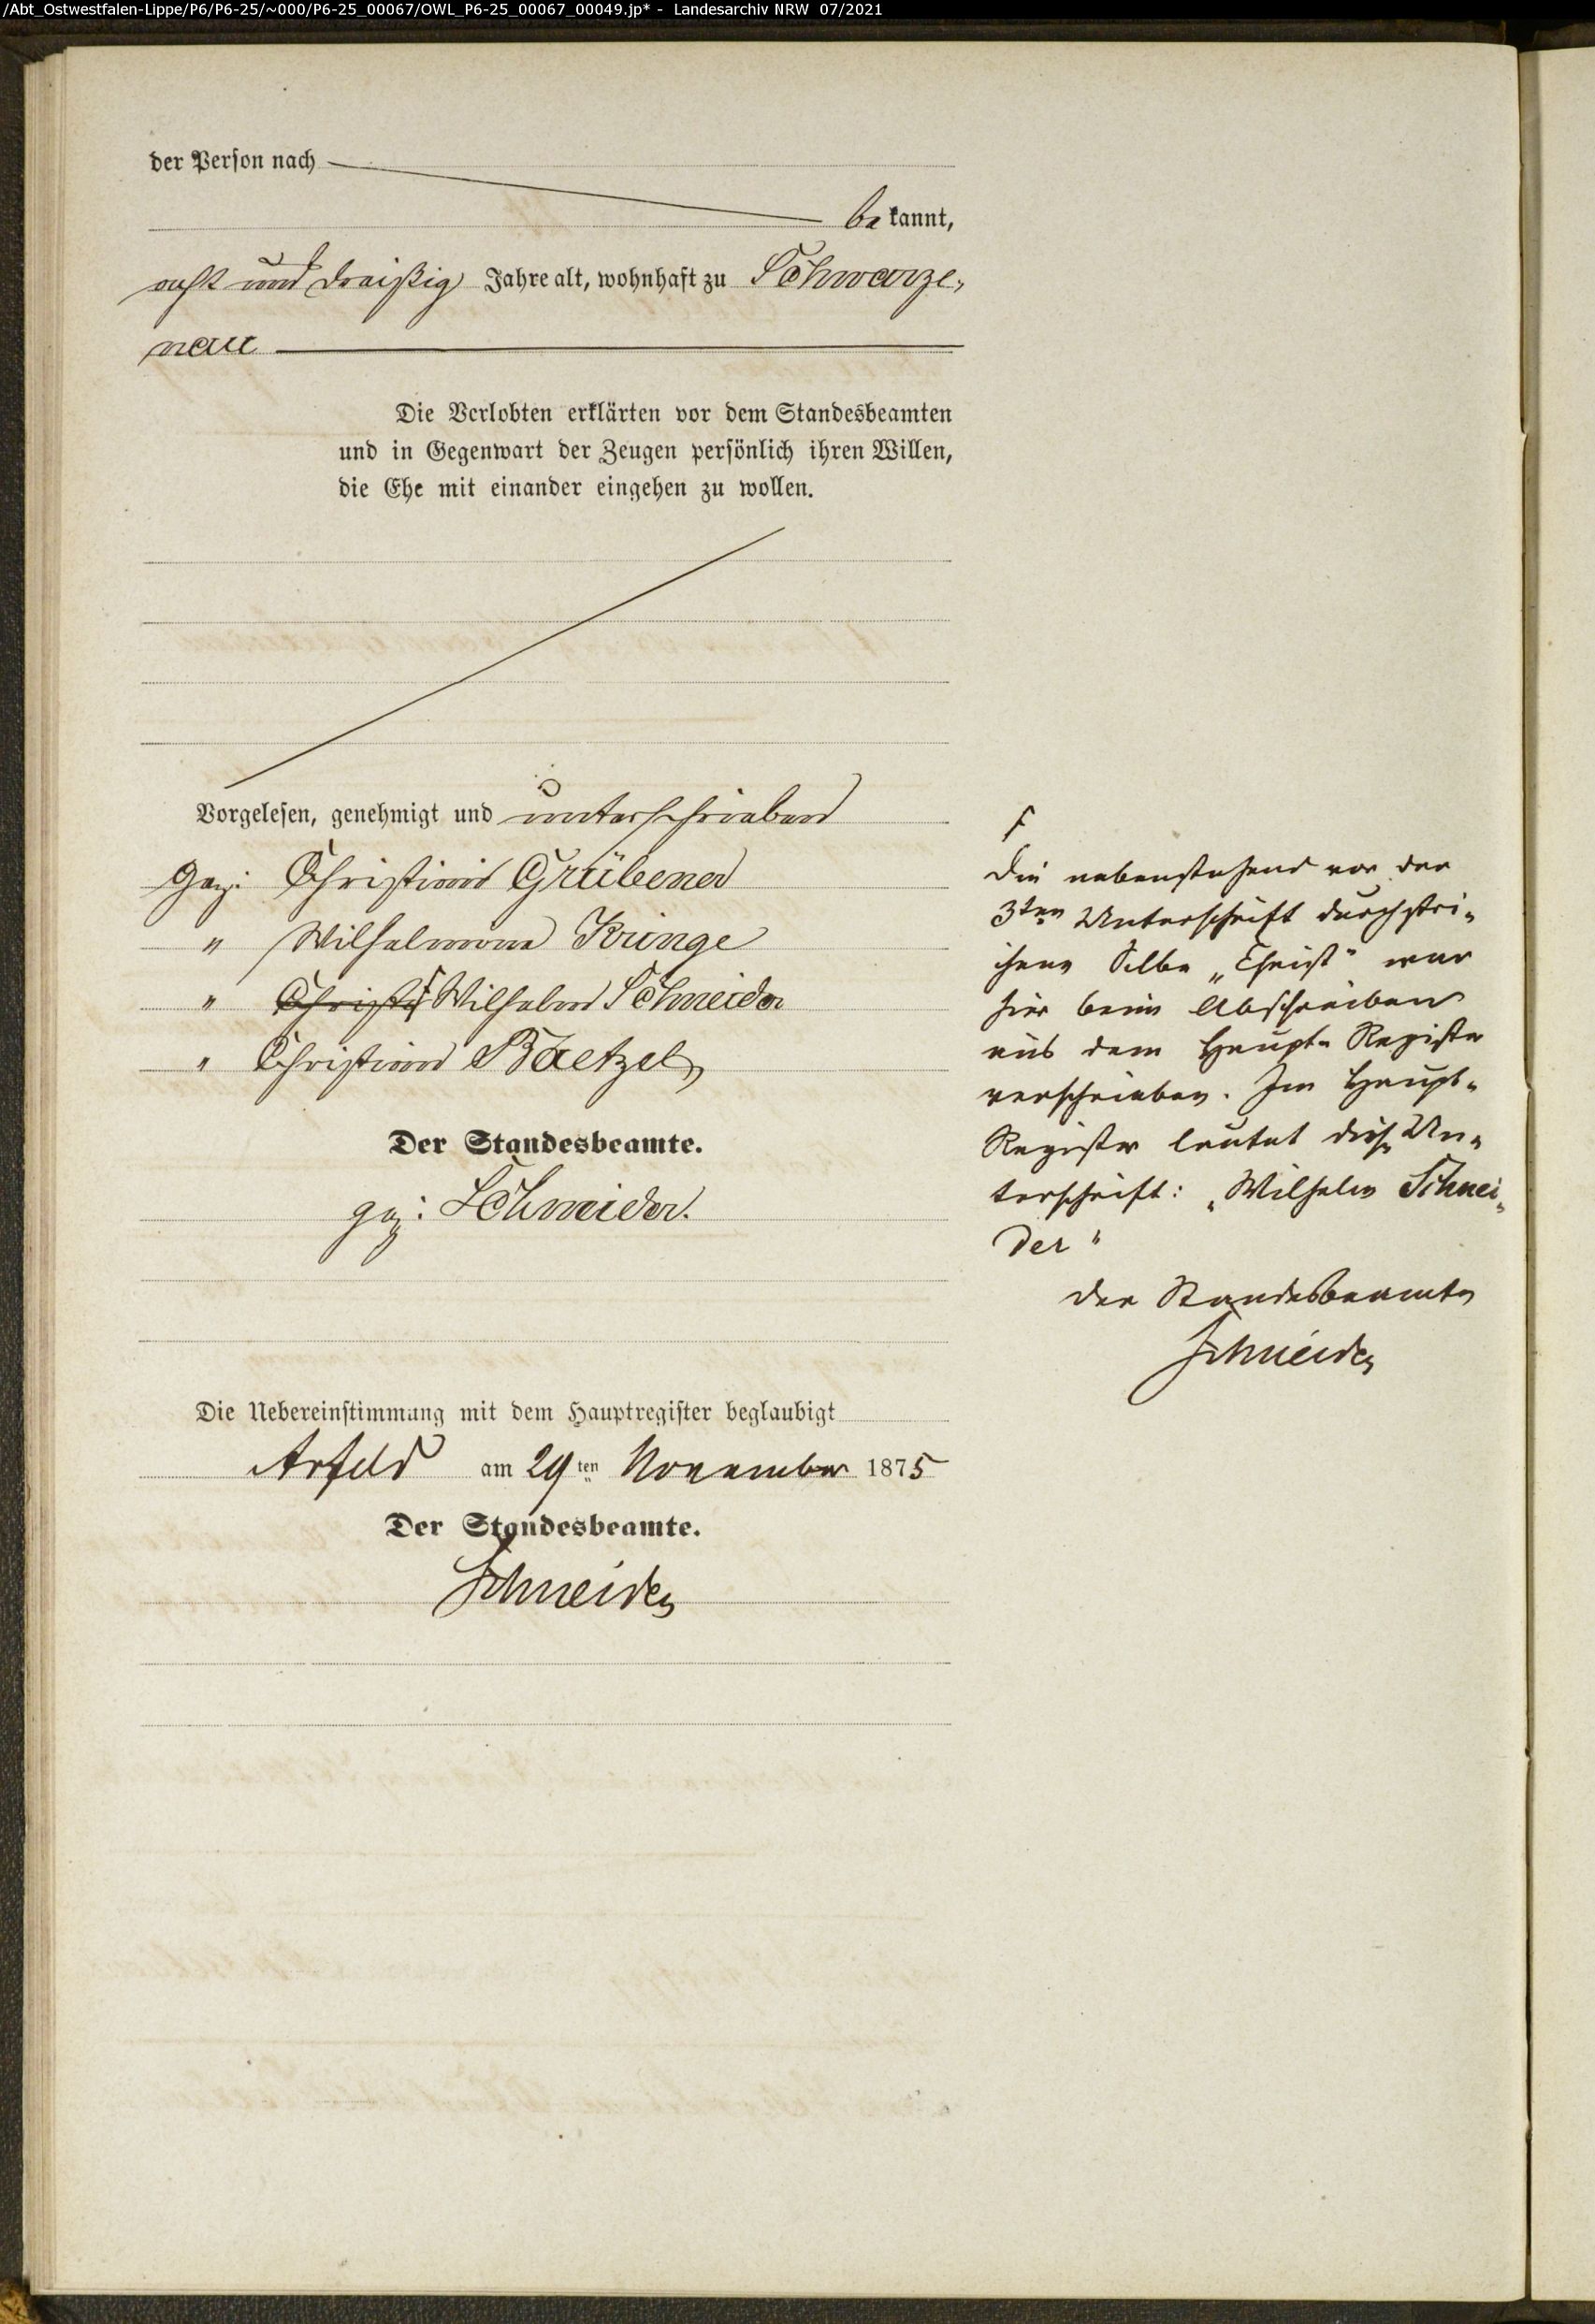 /Abt_Ostwestfalen-Lippe/P6/P6-25/~000/P6-25_00067/OWL_P6-25_00067_00049.jp* - Landesarchiv NRW 07/2021
der Person nach
bekannt,
acht und dreißig Jahre alt, wohnhaft zu Schwarze-
nau
Die Verlobten erklärten vor dem Standesbeamten
und in Gegenwart der Zeugen persönlich ihren Willen,
die Ehe mit einander eingehen zu wollen.
Vorgelesen, genehmigt und unterschrieben
gez: Christian Grübener
" Wilhelmine Kringe
" Christ Wilhelm Schneider
" Christian Baetzel
Der Standesbeamte.
gez: Schneider.
Die Uebereinstimmung mit dem Hauptregister beglaubigt
Arfeld am 29ten November 1875
Der Standesbeamte.
Schneider
Die nebenstehend vor der
3ten Unterschrift durchstri-
chene Silbe „Christ" war
hier beim Abschreiben
aus dem Haupt-Register
verschrieben. Im Haupt-
Register lautet diese Un-
terschrift: „Wilhelm Schnei-
der"
Der Standesbeamte
Schneider